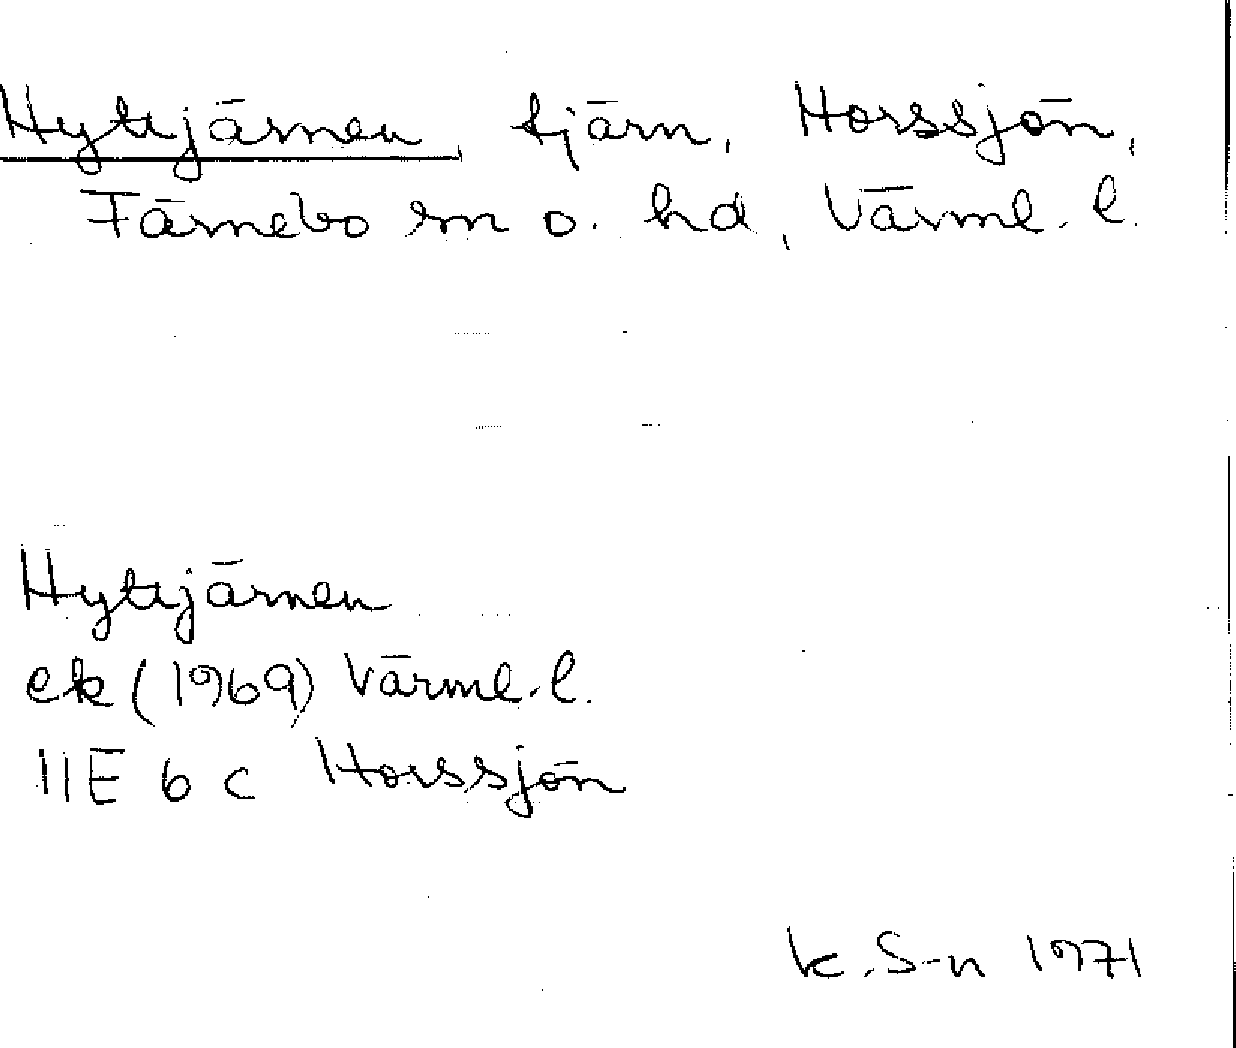 Hyttjärnen tjärn, Horssjön,
Färnebo sn o. hd, Värml. l.
Hyttjärnen
ek (1969) Värml. l.
11E 6 c Horssjön
K. S-n 1971